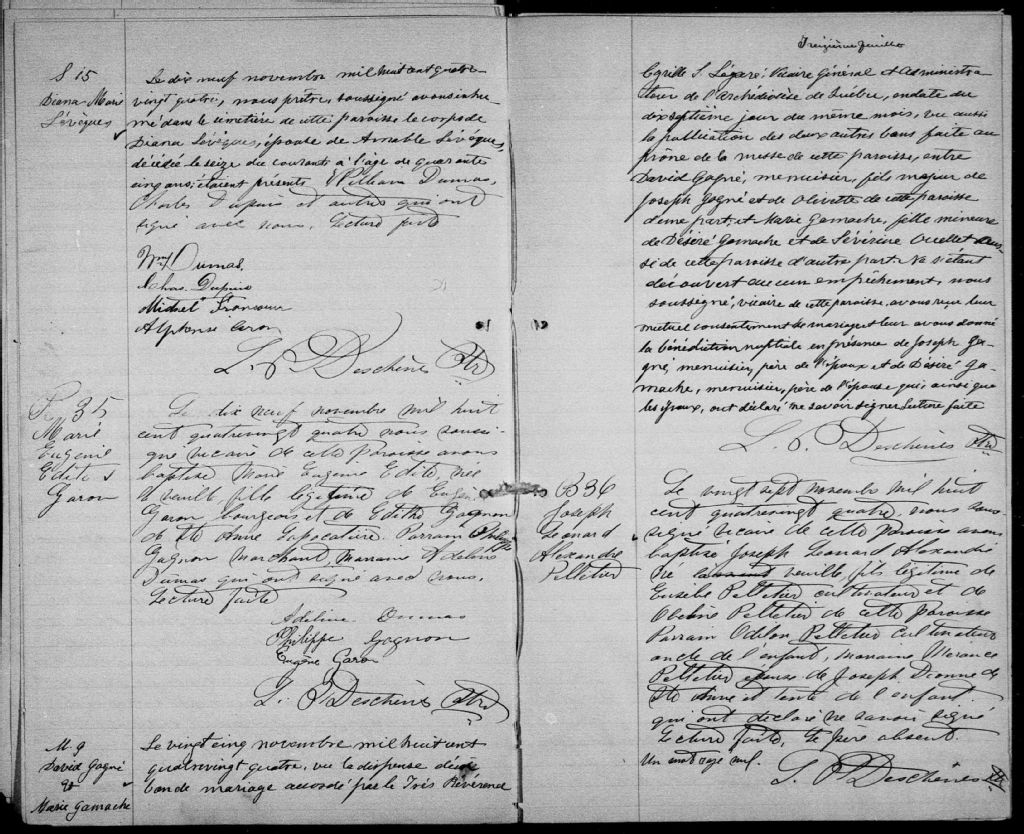 S 15
Diana Marie
Lévèques
Le dix neuf novembre mil huit cent quatre-
vingt quatre, nous prêtre soussigné avons inhu-
mé dans le cimetière de cette paroisse le corps de
Diana Lévèques, épouse de Amable Lévèques,
décédée le seize du courant à l'âge de quarante
cinq ans; étaient présents William Dumas,
Charles Dupuis et autres qui ont
signé avec nous. Lecture faite
Wm Dumas.
Chas. Dupuis
Michel Francoeur
Alphonse Caron
L. P. Deschènes Ptre
35
Marie
Eugenie
Edite
Garon
Le dix neuf novembre mil huit
cent quatrevingt quatre nous soussi-
gné vicaire de cette Paroisse avons
baptisé Marie Eugenie Edite née
la veille fille légitime de Eugène
Garon bourgeois et de Edithe Gagnon
de Ste Anne Lapocatière. Parrain Philippe
Gagnon marchant, Marraine Adeline
Dumas qui ont signé avec nous.
Lecture faite
Adeline Dumas
Philippe Gagnon
Eugène Garon
L. P. Deschènes Ptre
M. 9
David Gagné
&
Marie Gamache
Le vingt cinq novembre mil huit cent
quatrevingt quatre, vu la dispense de
ban de mariage accordé par le Très Révérend
Treizième feuillet
Cyrille S. Légaré, Vicaire Général et Administra-
teur de l'Archédiocèse de Québec, en date du
dix septième jour du même mois, vu aussi
la publication des deux autres bans faite au
prône de la messe de cette paroisse, entre
David Gagné, menuisier, fils majeur de
Joseph Gagné et de Olivette de cette paroisse
d'une part, et Marie Gamache, fille mineure
de Désiré Gamache et de Séverine Ouellet aus-
si de cette paroisse d'autre part. Ne s'étant
découvert aucun empêchement, nous
soussigné, vicaire de cette paroisse, avons reçu leur
mutuel consentement de mariage et leur avons donné
la bénédiction nuptiale en présence de Joseph Ga-
gné, menuisier, père de l'époux et de Désiré Ga-
mache, menuisier, père de l'épouse qui ainsi que
les époux, ont déclaré ne savoir signer. Lecture faite
L. P. Deschènes Ptre
B 36
Joseph
Leonard
Alexandre
Pelletier
Le vingt sept novembre mil huit
cent quatrevingt quatre, nous sous-
signé vicaire de cette Paroisse avons
baptisé Joseph Leonard Alexandre
né la veille fils légitime de
Eusèbe Pelletier cultivateur et de
Obeline Pelletier de cette Paroisse
Parrain Odilon Pelletier cultivateur
oncle de l'enfant, marraine
Pelletier épouse de Joseph Dionne de
Ste Anne et tante de l'enfant
qui ont declaré ne savoir signé
Lecture faite. Le père absent.
Un mot rayé nul.
L. P. Deschènes Ptre